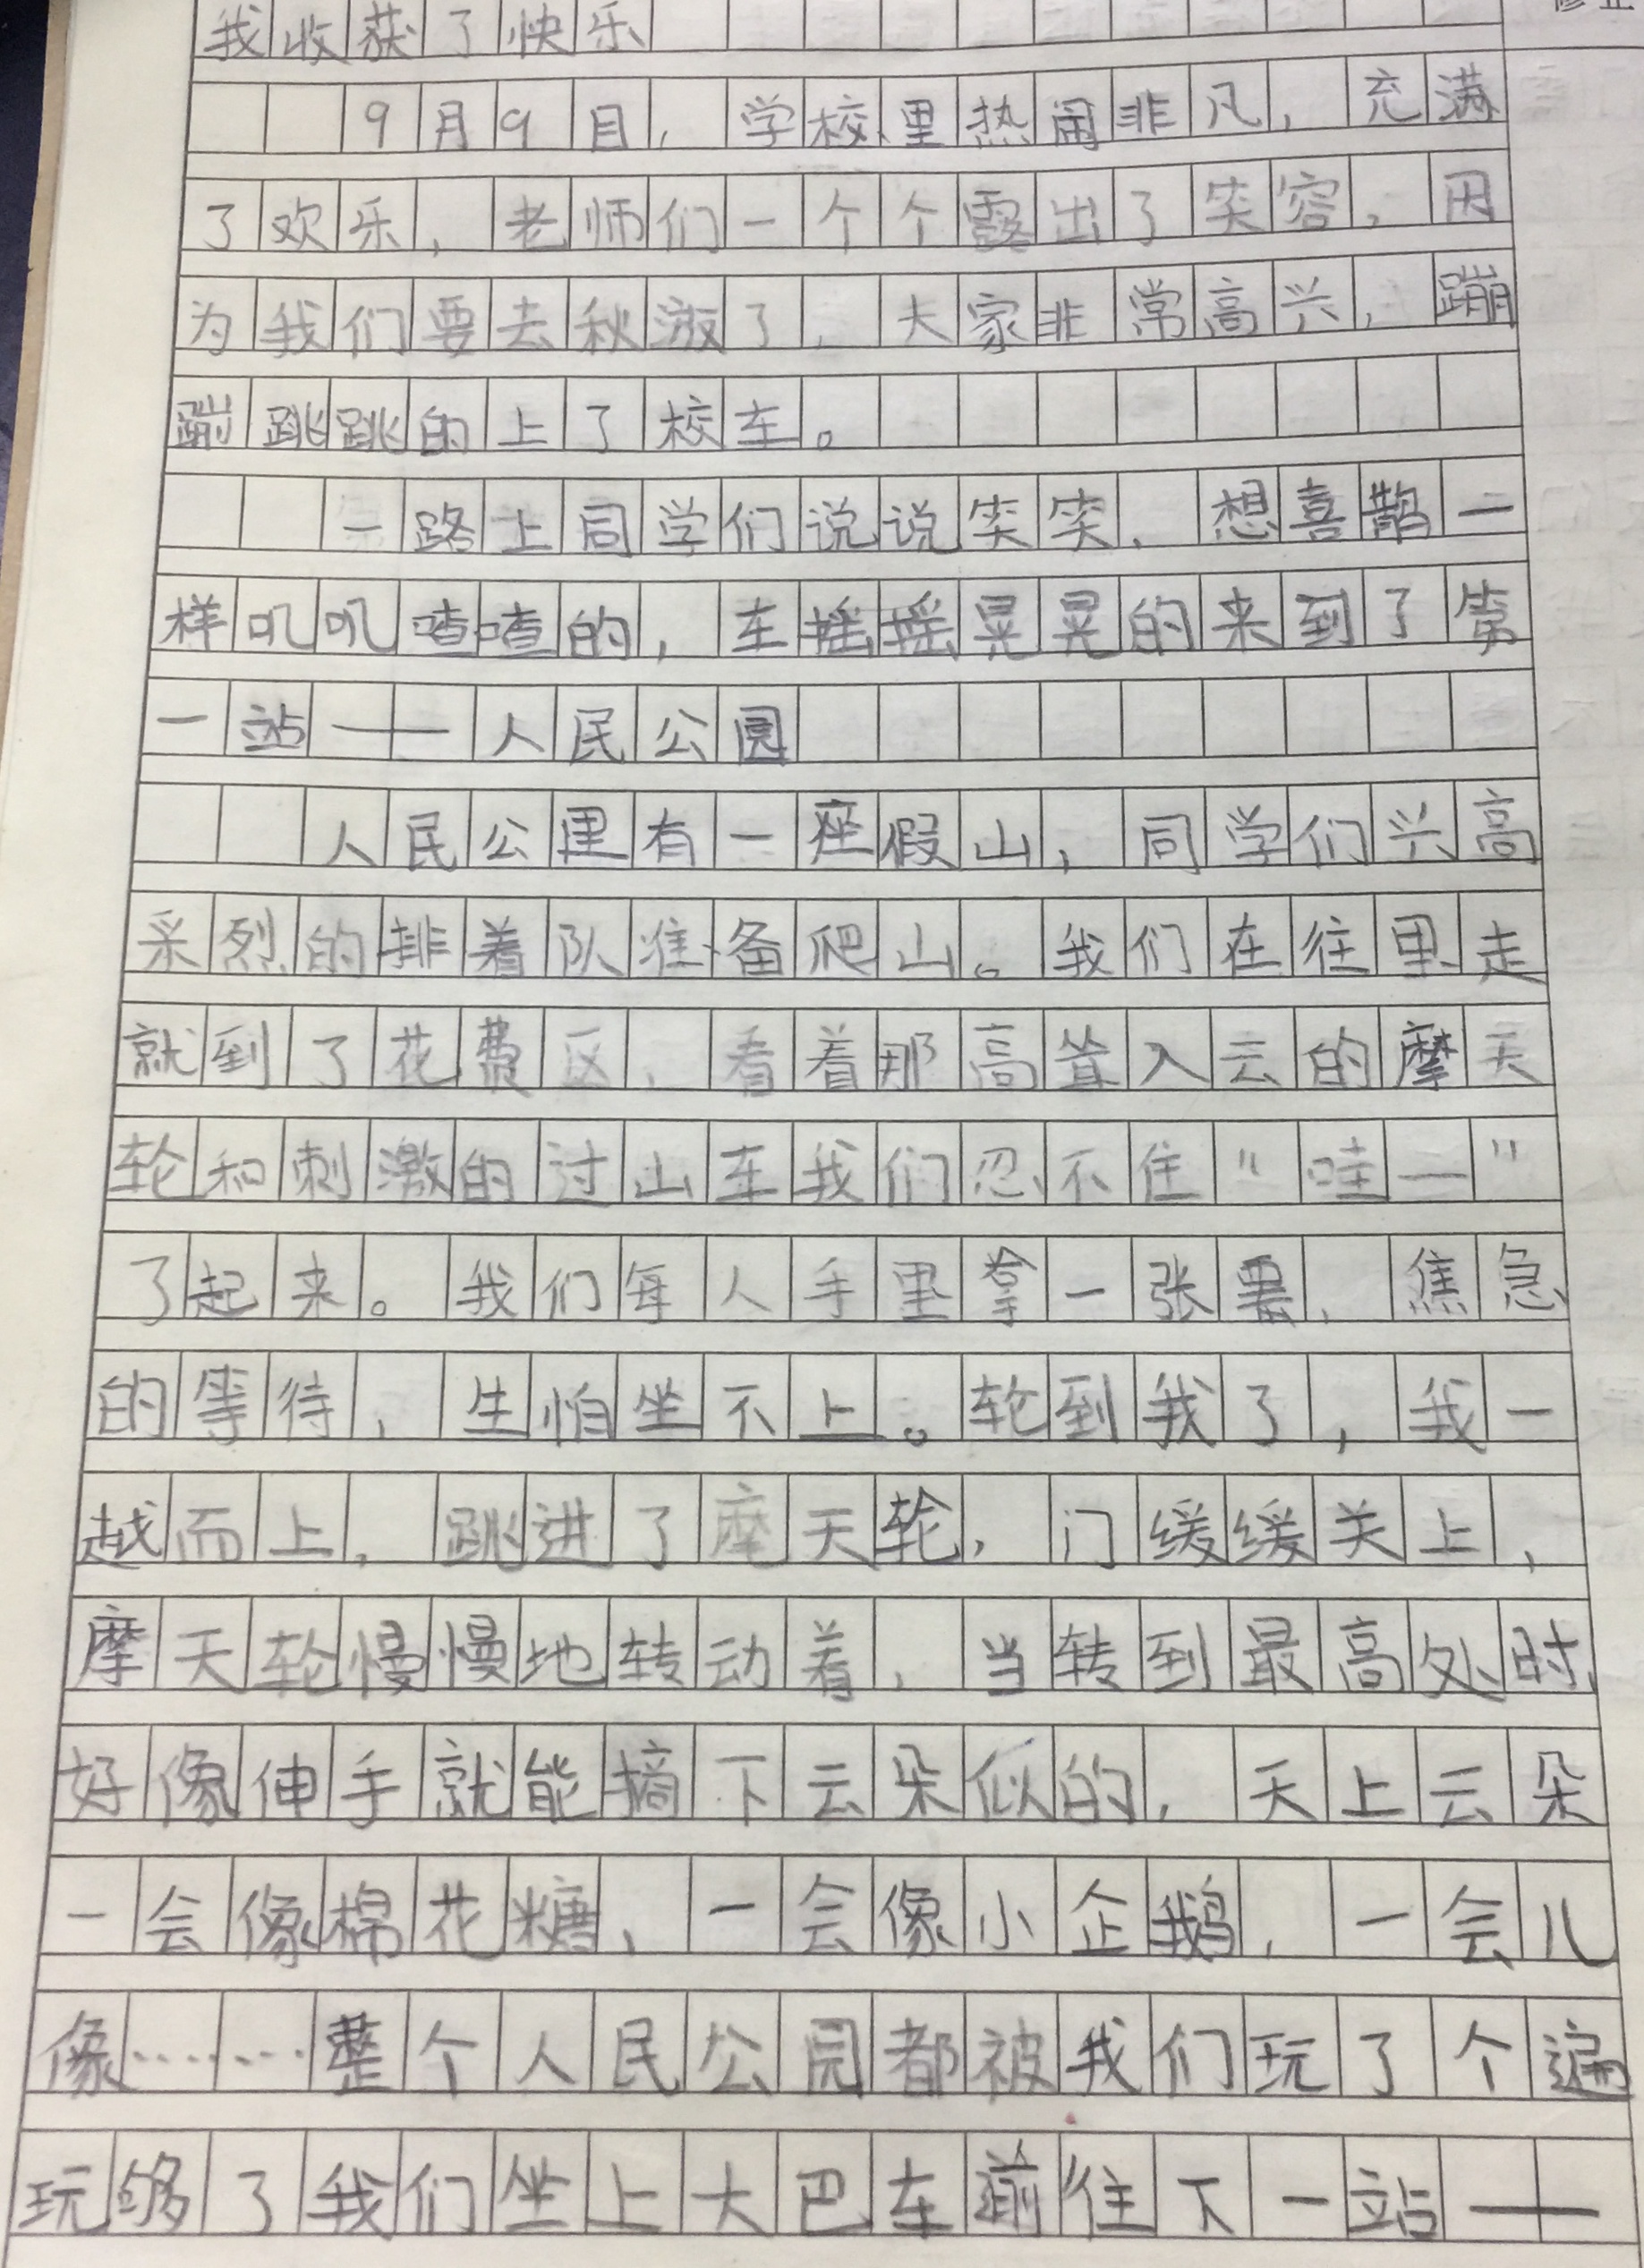 我收获了快乐
9月9日，学校里热闹非凡，充满
了欢乐，老师们一个个露出了笑容，因
为我们要去秋游了，大家非常高兴，蹦
蹦跳跳的上了校车。
一路上同学们说说笑笑，想喜鹊一
样叽叽喳喳的，车摇摇晃晃的来到了第
一站——人民公园
人民公里有一座假山，同学们兴高
采烈的排着队准备爬山。我们在往里走
就到了花费区，看着那高耸入云的摩天
轮和刺激的过山车我们忍不住“哇—”
了起来。我们每人手里拿一张票，焦急
的等待，生怕坐不上。轮到我了，我一
越而上，跳进了摩天轮，门缓缓关上，
摩天轮慢慢地转动着，当转到最高处时，
好像伸手就能摘下云朵似的，天上云朵
一会像棉花糖，一会像小企鹅，一会儿
像……整个人民公园都被我们玩了个遍
玩够了我们坐上大巴车前往下一站——